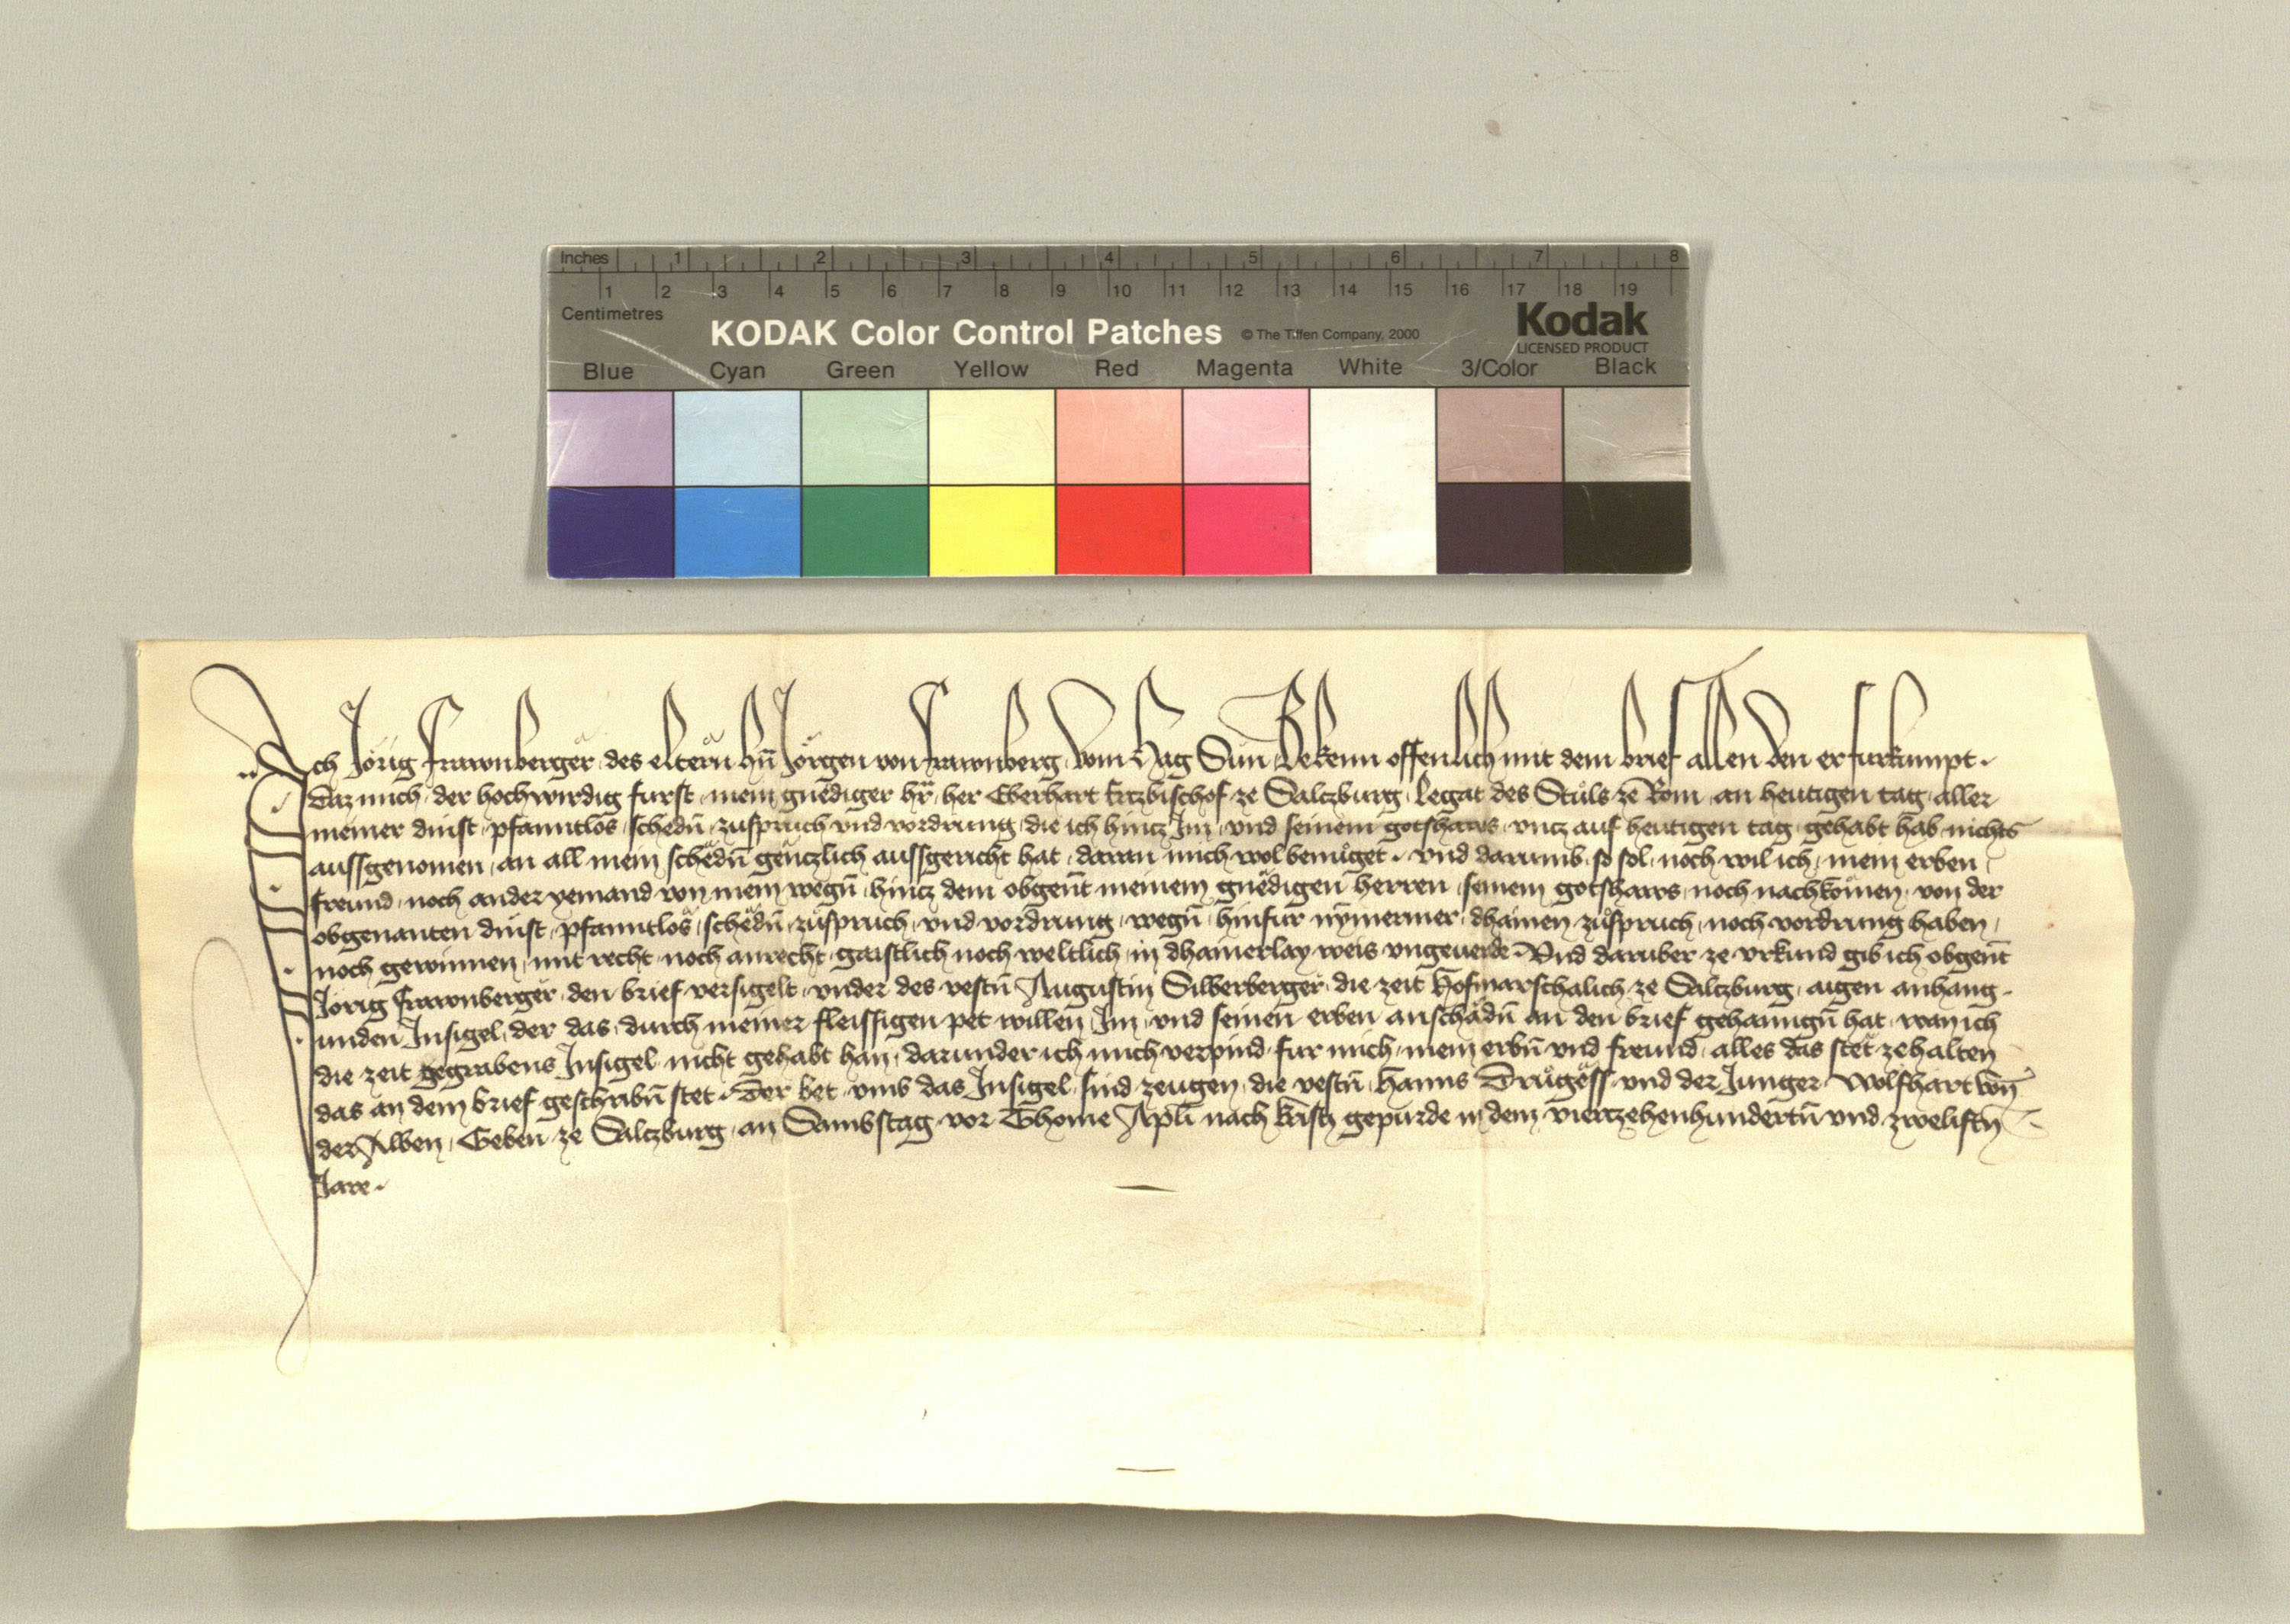 Inches 1 2 3 4 5 6 7 8
1 2 3 4 5 6 7 8 9 10 11 12 13 14 15 16 17 18 19
Centimetres
KODAK Color Control Patches © The Tiffen Company, 2000 Kodak
LICENSED PRODUCT
Blue Cyan Green Yellow Red Magenta White 3/Color Black
Ich Jörig Frawnberger des eltern hn̄ Jörgen von Frawnberg vom Hag Sun Bekenn offenlich mit dem brief allen den er furkumpt.
Daz mich der hochwirdig furst mein gnêdiger hr̄ her Eberhart Ertzbischof ze Salczburg Legat des Stůls ze Rom an heutigen tag aller
meiner dinst pfanntlos schedn̄ zuspruch vnd vordrung die ich hincz Im vnd seinem gotshaws vncz auf heutigen tag gehabt hab nichts
aussgenomen an all mein schêdn̄ gênczlich aussgericht hat daran mich wol benůget. vnd darumb so sol noch wil ich mein erben
freund noch ander yemand von mein wegn̄ hincz dem obgen̄t meinem gnêdigen herren seinem gotshaws noch nachkömen von der
obgenanten dinst pfanntlos schêdn̄ zůspruch vnd vordrung wegn̄ hinfur nymermer dhainen zůspruch noch vordrung haben
noch gewinnen mit recht noch anrecht gaistlich noch weltlich in dhainerlay weis vngeuerde Vnd daruber ze vrkund gib ich obgen̄t
Jörig Frawnberger den brief versigelt vnder des vestn̄ Augustin Silberberger die zeit Hofmarschalich ze Salczburg aigen anhang
unden Insigel der das durch meiner fleissigen pet willen Im vnd seinen erben anschâdn̄ an den brief gehanngn̄ hat wan ich
die zeit gegrabens Insigel nicht gehabt han darunder ich mich verpind fur mich mein erbn̄ vnd freund alles das stêt zehalten
das an dem brief geschribn̄ stet. Der bet vmb das Insigel sind zeugen die vestn̄ Hanns Drugöss vnd der Junger Wolfhart von
der Alben Geben ze Salczburg an Sambstag vor Thome Apl̄i nach Kristi gepurde in dem vierczehenhundertn̄ vnd zweliftn̄
Jare.